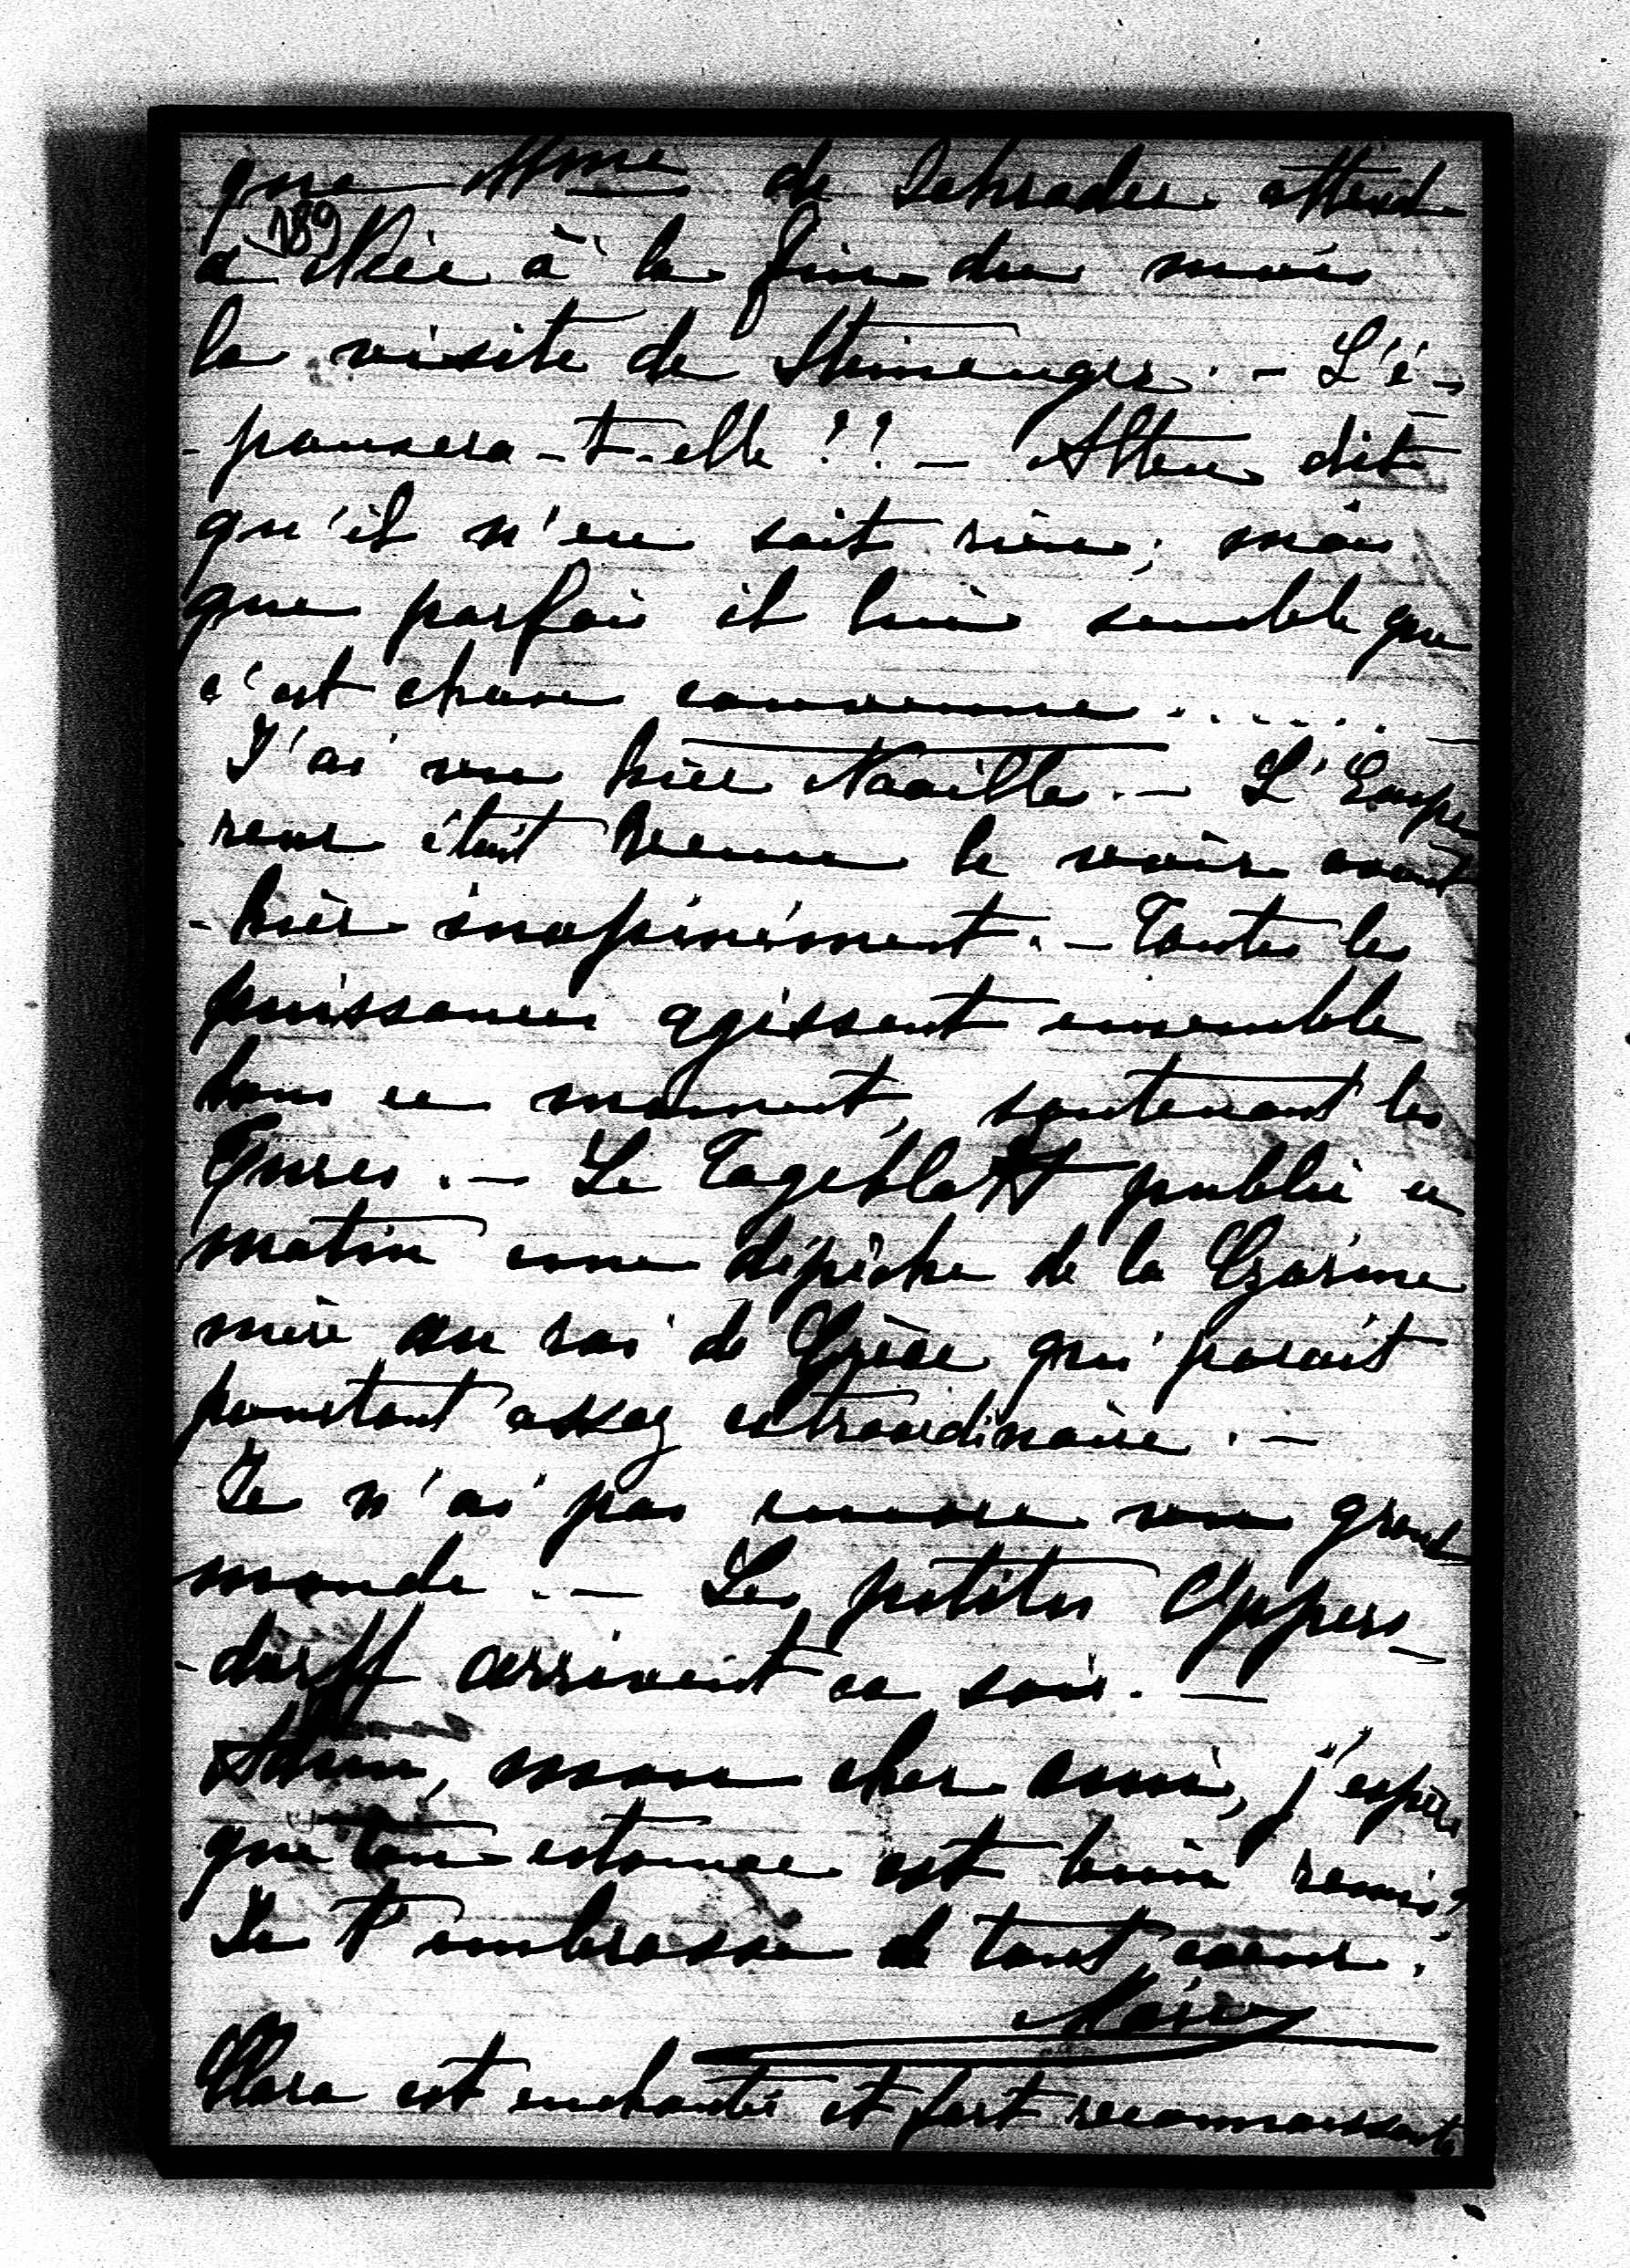 que Mme de Schrader attend
189
à Nice à la fin du mois
la visite de Steinengre. — L'é-
-pousera-t-elle ?? — Alten dit
qu'il n'en sait rien; mais
que parfois il lui semble que
c'est chose convenue ......
J'ai vu hier Noailles. — L'Empe
reur était venu le voir avant
-hier inopinément. — Toutes les
puissances agissent ensemble
dans ce moment, soutenant les
Turcs. — Le Tageblatt publie ce
matin une dépêche de la Czarine
mère au roi de Grèce qui paraît
pourtant assez extraordinaire. —
Je n'ai pas encore vu grand
monde. — Les petites Oppers-
-dorff arrivent ce soir. —
Adieu, mon cher ami, j'espère
que ton estomac est bien remis?
Je t'embrasse de tout coeur.
Marie
Clara est enchantée et fort reconnaissante